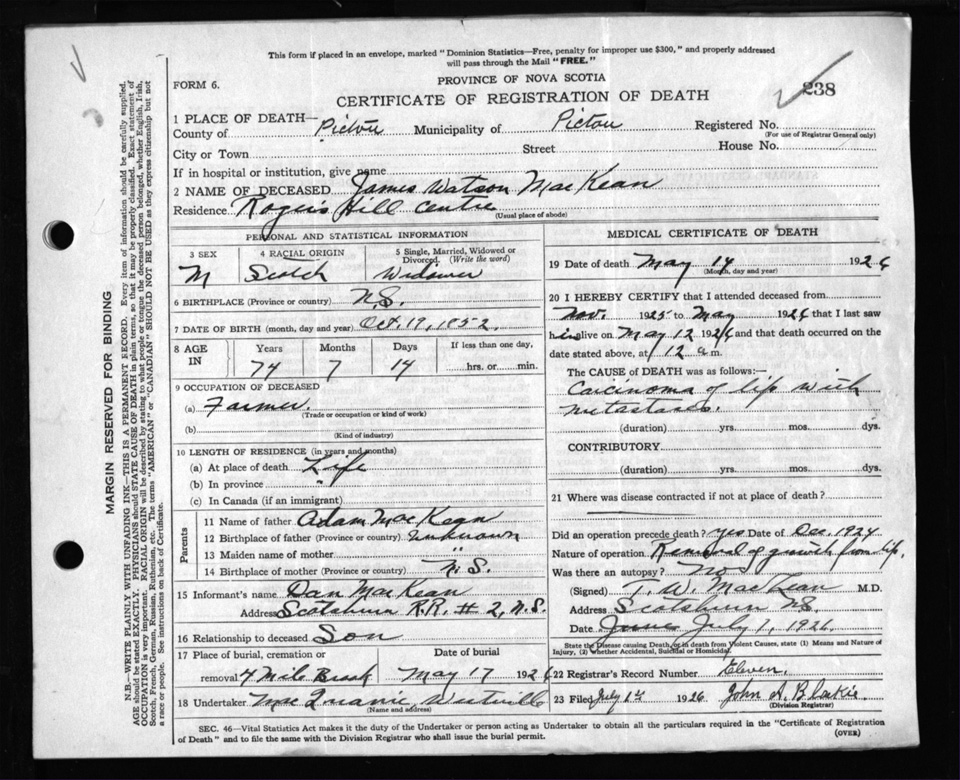 This form if placed in an envelope, marked "Dominion Statistics—Free, penalty for improper use $300," and properly addressed
will pass through the Mail "FREE."
PROVINCE OF NOVA SCOTIA
FORM 6.
238
CERTIFICATE OF REGISTRATION OF DEATH
1 PLACE OF DEATH—
County of Pictou Municipality of Pictou Registered No.
(For use of Registrar General only)
City or Town Street House No.
If in hospital or institution, give name
2 NAME OF DECEASED James Watson MacKean
Residence Rogers Hill Centre
(Usual place of abode)
PERSONAL AND STATISTICAL INFORMATION
3 SEX 4 RACIAL ORIGIN 5 Single, Married, Widowed or
Divorced. (Write the word)
M Scotch Widower
6 BIRTHPLACE (Province or country) N.S.
7 DATE OF BIRTH (month, day and year) Oct. 19, 1852.
8 AGE IN Years Months Days If less than one day,
74 7 14 hrs. or min.
9 OCCUPATION OF DECEASED
(a) Farmer.
(Trade or occupation or kind of work)
(b)
(Kind of industry)
10 LENGTH OF RESIDENCE (in years and months)
(a) At place of death Life
(b) In province "
(c) In Canada (if an immigrant)
Parents
11 Name of father Adam MacKean
12 Birthplace of father (Province or country) Unknown
13 Maiden name of mother "
14 Birthplace of mother (Province or country) N.S.
15 Informant's name Dan MacKean
Address Scotsburn R.R. # 2, N.S.
16 Relationship to deceased Son
17 Place of burial, cremation or Date of burial
removal 4 Mile Brook May 17 1926
18 Undertaker Westville
(Name and address)
MEDICAL CERTIFICATE OF DEATH
19 Date of death May 14 1926
(Month, day and year)
20 I HEREBY CERTIFY that I attended deceased from
Nov. 1925 to May 1926 that I last saw
him alive on May 12 1926 and that death occurred on the
date stated above, at 12 a m.
The CAUSE of DEATH was as follows:—
Carcinoma of lip with
metastases.
(duration) yrs. mos. dys.
CONTRIBUTORY
(duration) yrs. mos. dys.
21 Where was disease contracted if not at place of death?
Did an operation precede death? yes Date of Dec. 1924
Nature of operation Removal of growth from lip.
Was there an autopsy? No
(Signed) T. W. MacKean M.D.
Address Scotsburn N.S.
Date June July 1, 1926.
State the Disease causing Death, or in death from Violent Causes, state (1) Means and Nature of
Injury, (2) Whether Accidental, Suicidal or Homicidal.
22 Registrar's Record Number Eleven.
23 Filed July 1st 1926 John A. Blaikie
(Division Registrar)
SEC. 46—Vital Statistics Act makes it the duty of the Undertaker or person acting as Undertaker to obtain all the particulars required in the "Certificate of Registration
of Death" and to file the same with the Division Registrar who shall issue the burial permit.
(OVER)
MARGIN RESERVED FOR BINDING
N.B.—WRITE PLAINLY WITH UNFADING INK—THIS IS A PERMANENT RECORD. Every item of information should be carefully supplied.
AGE should be stated EXACTLY. PHYSICIANS should STATE CAUSE OF DEATH in plain terms, so that it may be properly classified. Exact statement of
OCCUPATION is very important. RACIAL ORIGIN will be described by stating to what people or tongue the deceased person belonged, whether English, Irish,
Scotch, French, German, Russian, Ruthenian, etc. The terms "AMERICAN" or "CANADIAN" SHOULD NOT BE USED as they express citizenship but not
a race or people. See instructions on back of Certificate.